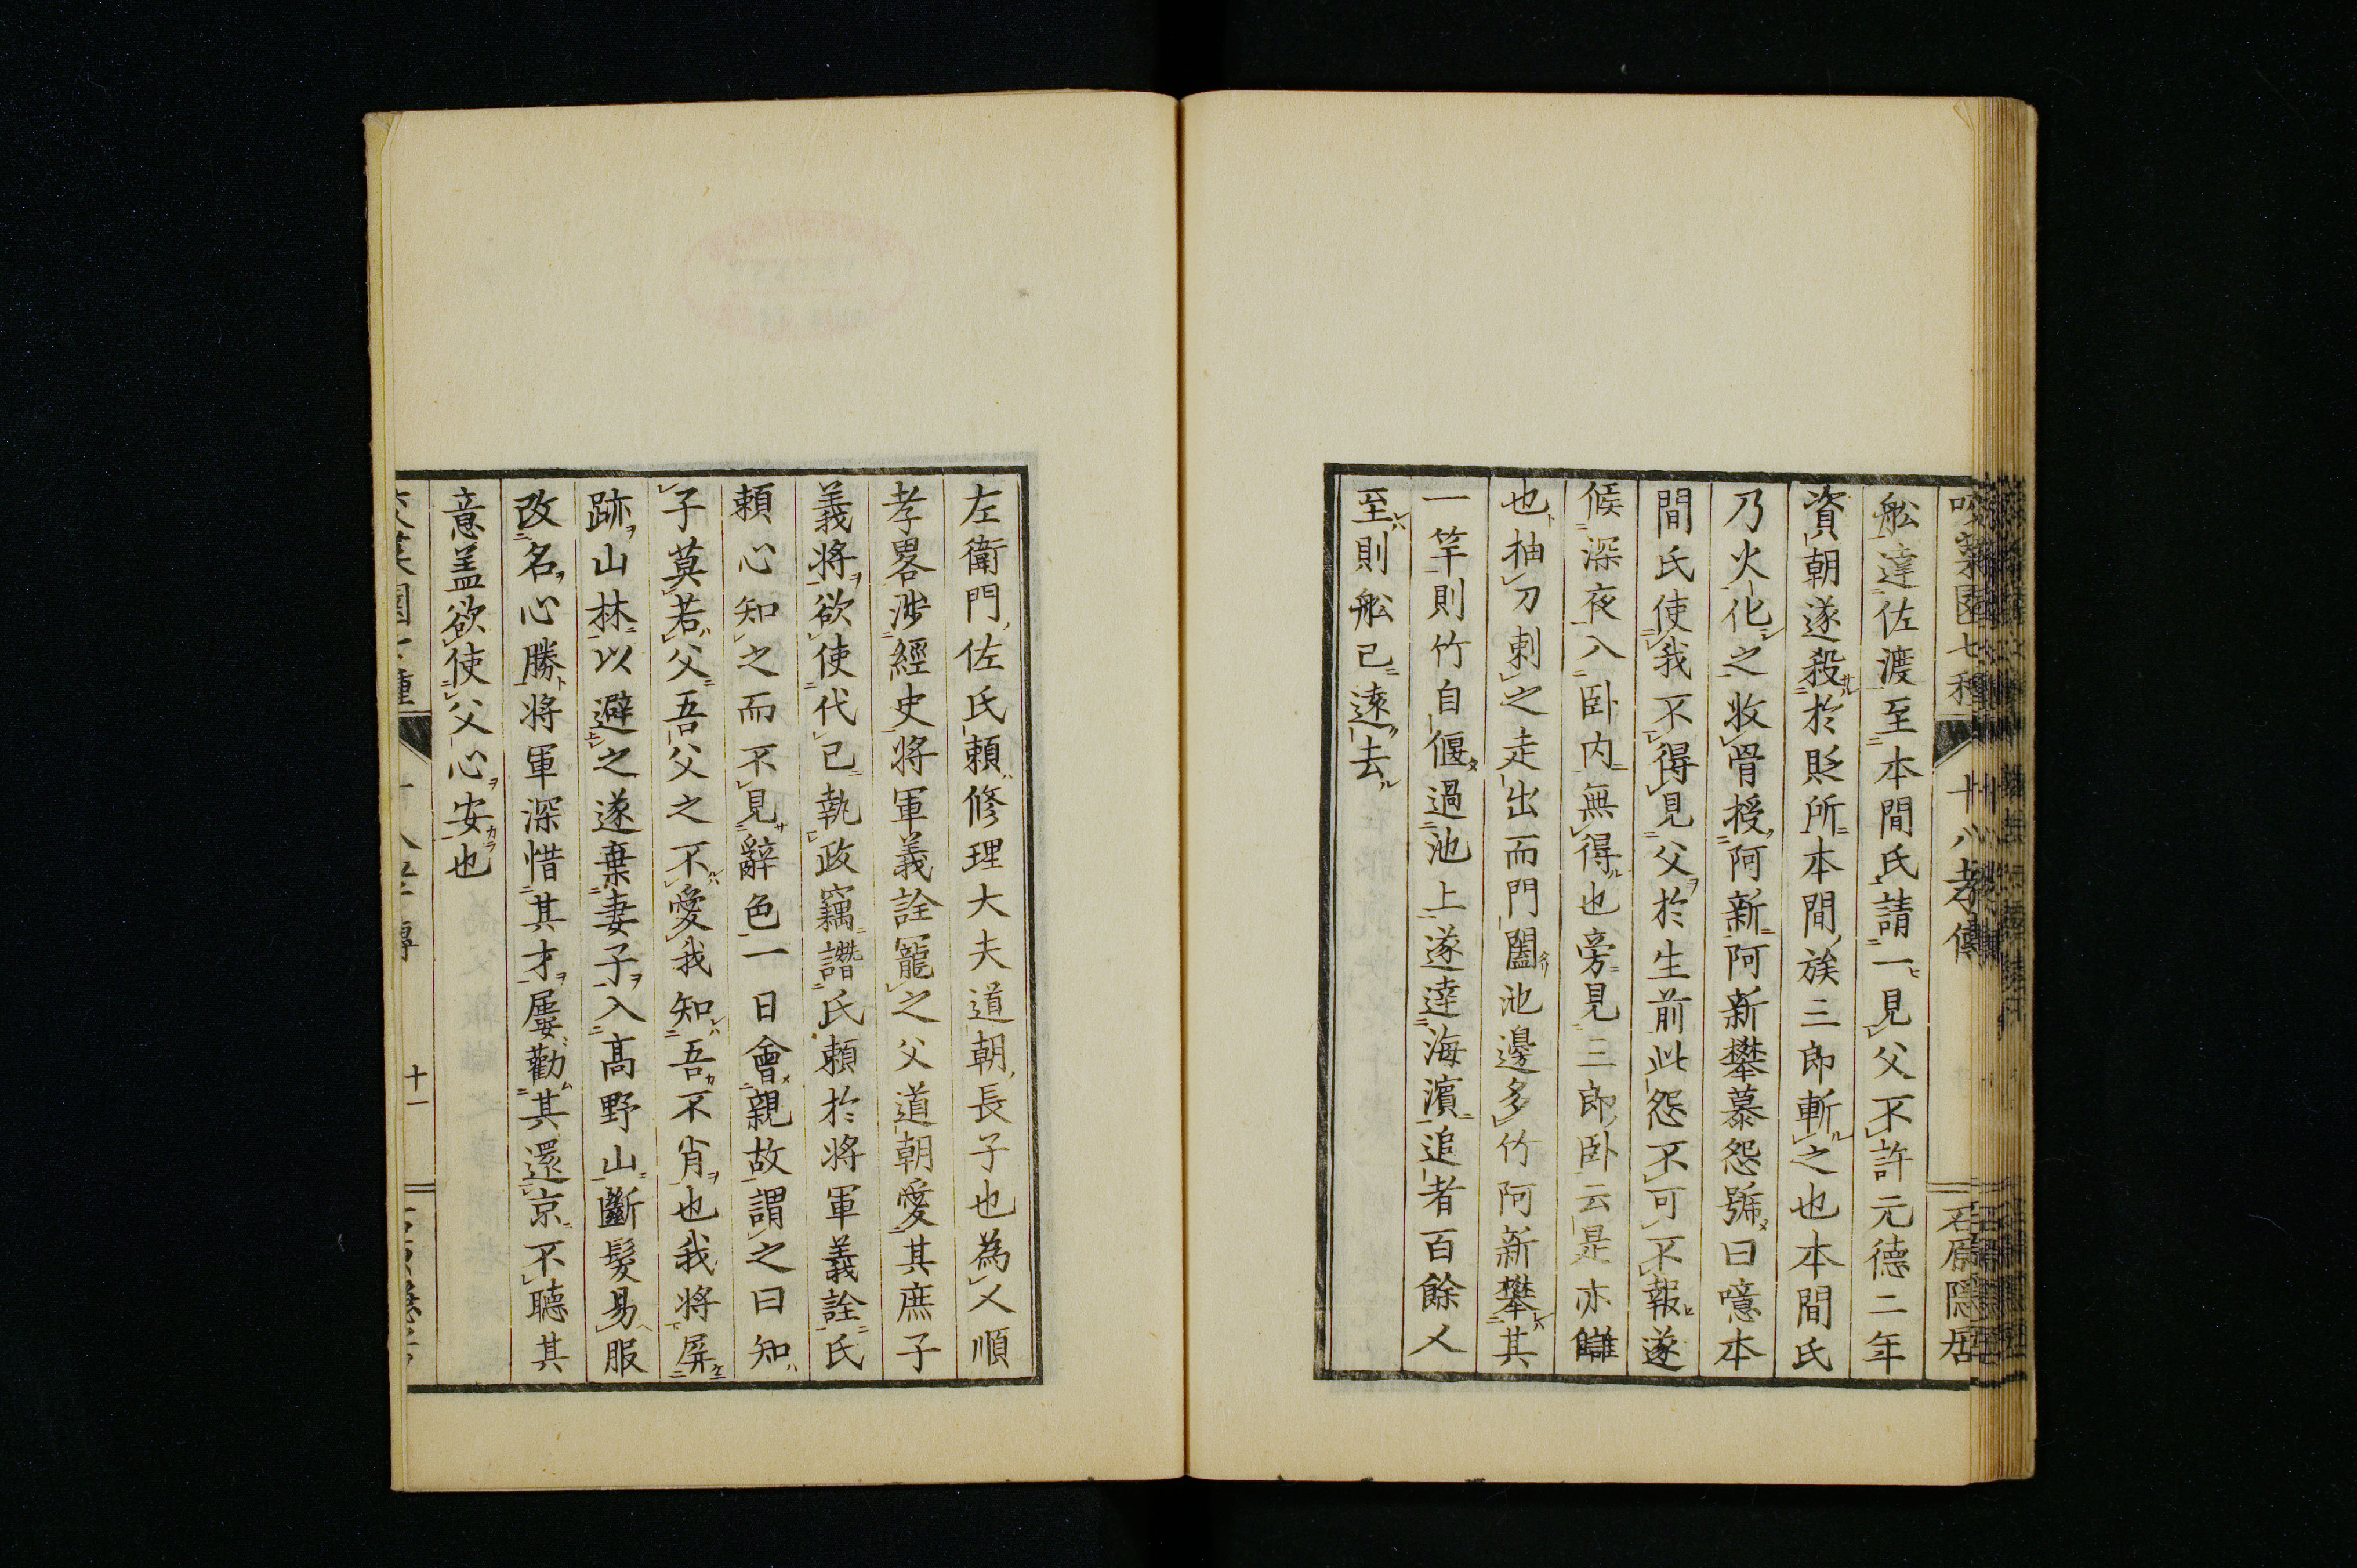 十八孝傳
石原隱居
舩達佐渡至本間氏請一見父不許元德二年
資朝遂殺於貶所本間族三郎斬之也本間氏
乃火化之收骨授阿新阿新攀慕怨號曰噫本
間氏使我不得見父於生前此怨不可不報遂
候深夜入臥内無得也旁見三郎臥云是亦讎
也抽刀刺之走出而門闔池邊多竹阿新攀其
一竿則竹自偃過池上遂達海濵追者百餘人
至則舩已遠去
左衛門佐氏頼修理大夫道朝長子也為人順
孝畧涉經史将軍義詮寵之父道朝愛其庶子
義将欲使代已執政竊譖氏頼於将軍義詮氏
頼心知之而不見辭色一日會親故謂之曰知
子莫若父吾父之不愛我知吾不肖也我将屏
跡山林以避之遂棄妻子入高野山斷髮易服
改名心勝将軍深惜其才屢勸其還京不聽其
意盖欲使父心安也
十一